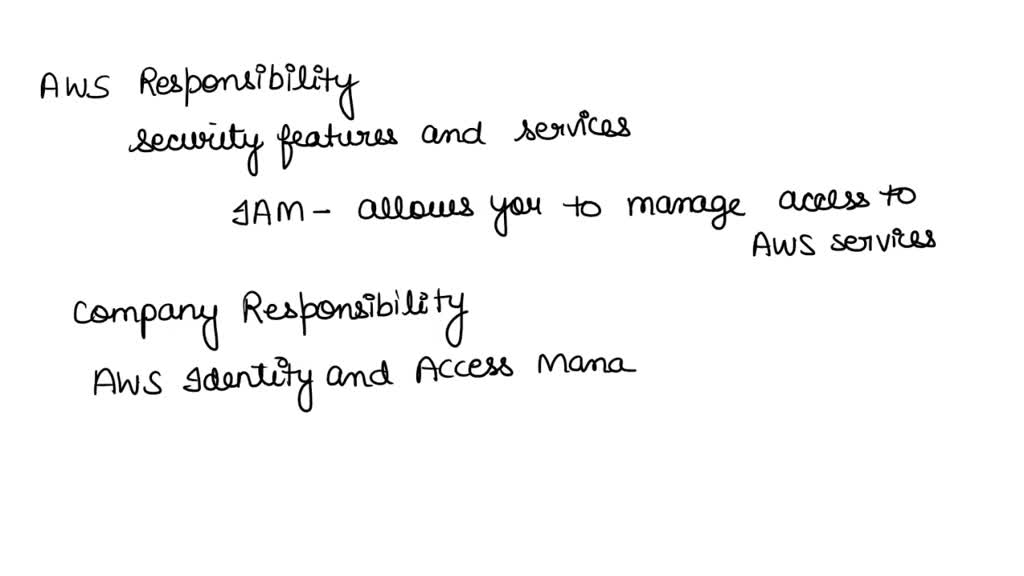 AWS Responsibility
security features and services
IAM - allows you to manage access to
AWS services
Company Responsibility
AWS Identity and Access Mana